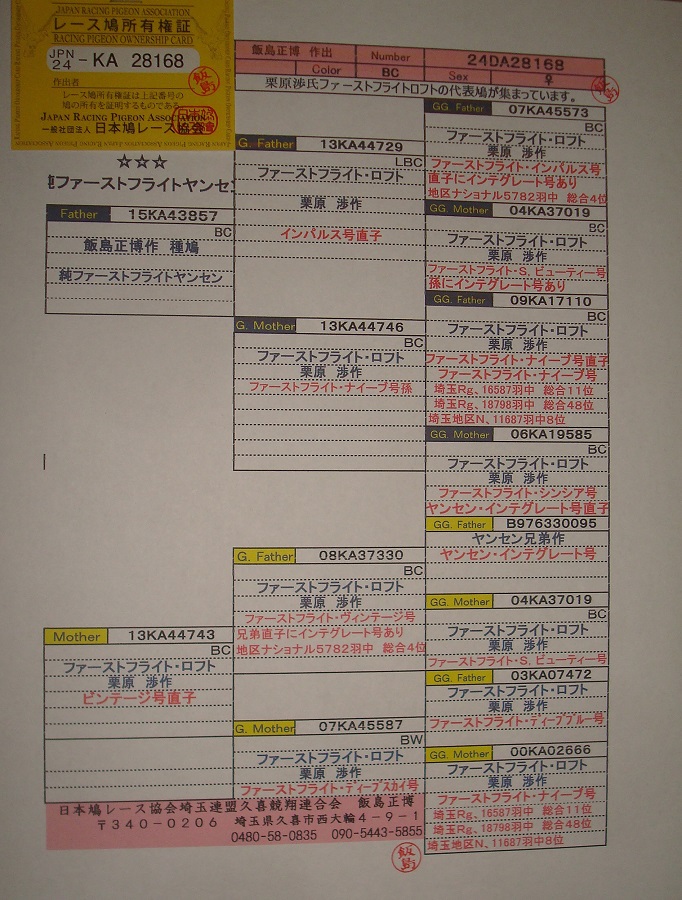 JAPAN RACING PIGEON ASSOCIATION
レース鳩所有権証
RACING PIGEON OWNERSHIP CARD
JPN 24 -KA 28168
作出者
レース鳩所有権証は上記番号の
鳩の所有を証明するものである。
JAPAN RACING PIGEON ASSOCIATION
一般社団法人 日本鳩レース協会
飯島
飯島正博 作出 Number 24DA28168
Color BC Sex ♀
飯島
栗原渉氏ファーストフライトロフトの代表鳩が集まっています。
☆☆☆
純ファーストフライトヤンセン
Father 15KA43857
BC
飯島正博作 種鳩
純ファーストフライトヤンセン
G. Father 13KA44729
LBC
ファーストフライト・ロフト
栗原 渉作
インパルス号直子
G. Mother 13KA44746
BC
ファーストフライト・ロフト
栗原 渉作
ファーストフライト・ナイーブ号孫
GG. Father 07KA45573
BC
ファーストフライト・ロフト
栗原 渉作
ファーストフライト・インパルス号
直子にインテグレート号あり
地区ナショナル5782羽中 総合4位
GG. Mother 04KA37019
BC
ファーストフライト・ロフト
栗原 渉作
ファーストフライト・S. ビューティー号
孫にインテグレート号あり
GG. Father 09KA17110
BC
ファーストフライト・ロフト
栗原 渉作
ファーストフライト・ナイーブ号直子
ファーストフライト・ナイーブ号
埼玉Rg、16587羽中 総合11位
埼玉Rg、18798羽中 総合48位
埼玉地区N、11687羽中8位
GG. Mother 06KA19585
BC
ファーストフライト・ロフト
栗原 渉作
ファーストフライト・シンシア号
ヤンセン・インテグレート号直子
Mother 13KA44743
BC
ファーストフライト・ロフト
栗原 渉作
ビンテージ号直子
G. Father 08KA37330
BC
ファーストフライト・ロフト
栗原 渉作
ファーストフライト・ヴィンテージ号
兄弟直子にインテグレート号あり
地区ナショナル5782羽中 総合4位
G. Mother 07KA45587
BW
ファーストフライト・ロフト
栗原 渉作
ファーストフライト・ディープスカイ号
GG. Father B976330095
ヤンセン兄弟作 BC
ヤンセン・インテグレート号
GG. Mother 04KA37019
BC
ファーストフライト・ロフト
栗原 渉作
ファーストフライト・S. ビューティー号
GG. Father 03KA07472
ファーストフライト・ロフト BC
栗原 渉作
ファーストフライト・ディープブルー号
GG. Mother 00KA02666
BC
ファーストフライト・ロフト
栗原 渉作
ファーストフライト・ナイーブ号
埼玉Rg、16587羽中 総合11位
埼玉Rg、18798羽中 総合48位
埼玉地区N、11687羽中8位
日本鳩レース協会埼玉連盟久喜競翔連合会 飯島正博
〒340-0206 埼玉県久喜市西大輪4-9-1
0480-58-0835 090-5443-5855
飯島